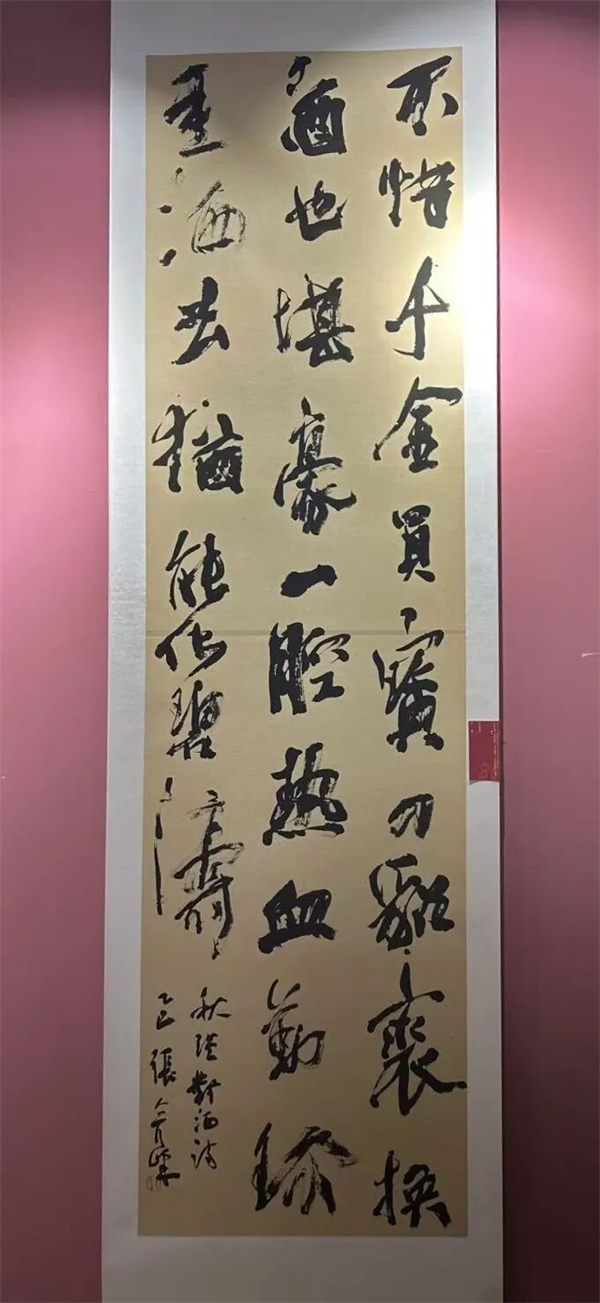 不惜千金買寶刀貂裘換
酒也堪豪一腔熱血勤珍
重洒去猶能化碧濤
秋瑾對酒詩
乙巳張